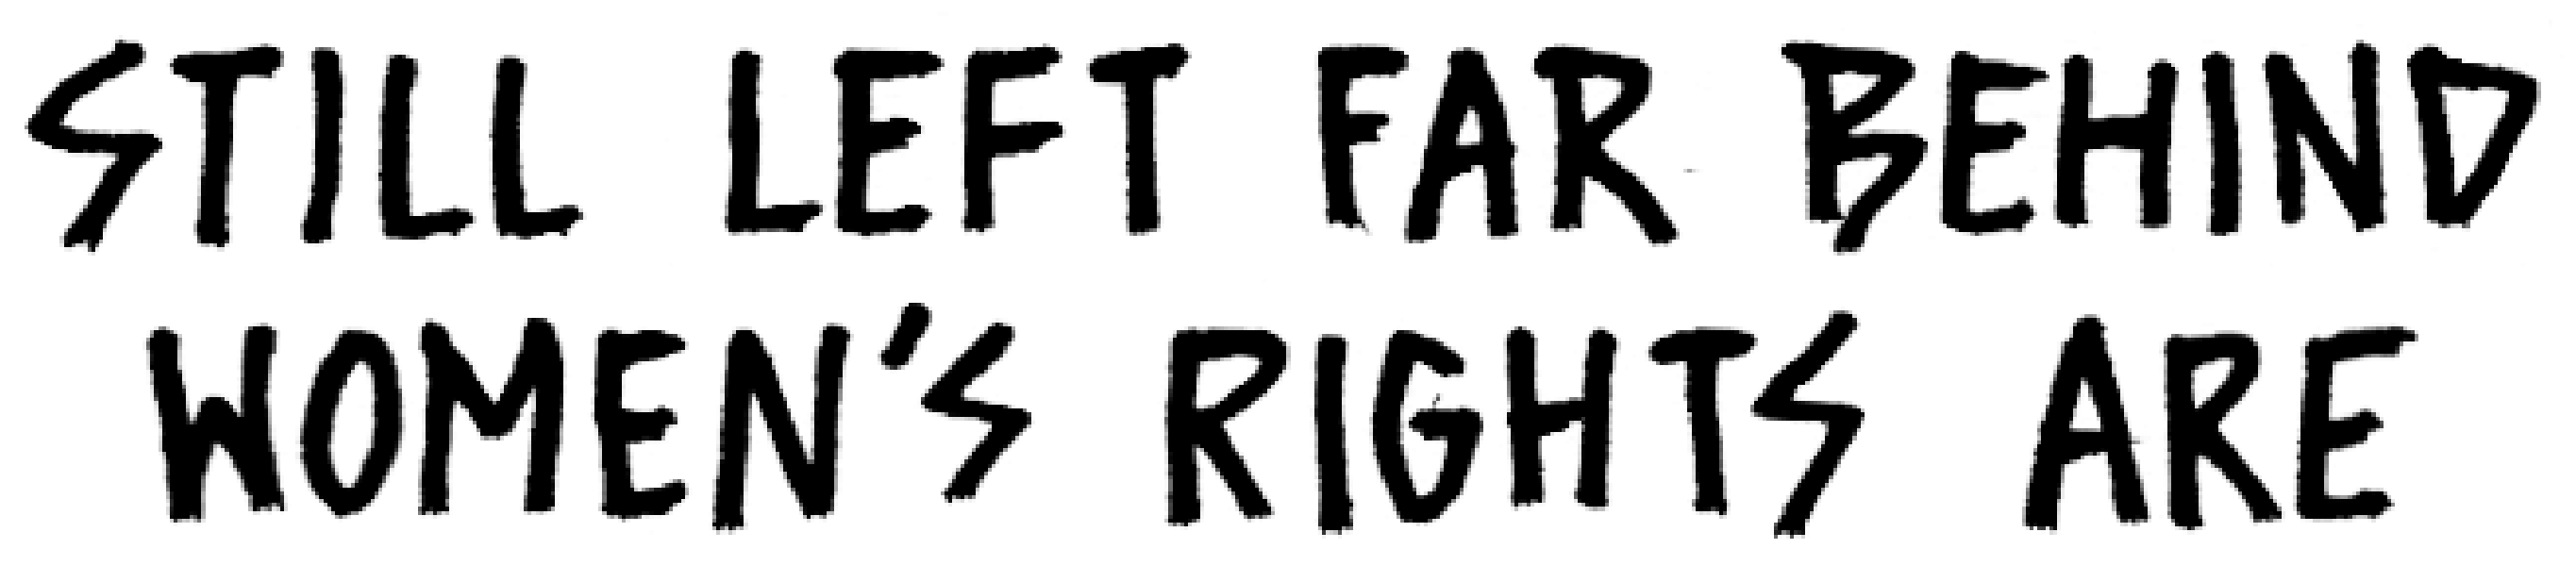 STILL LEFT FAR BEHIND
WOMEN'S RIGHTS ARE